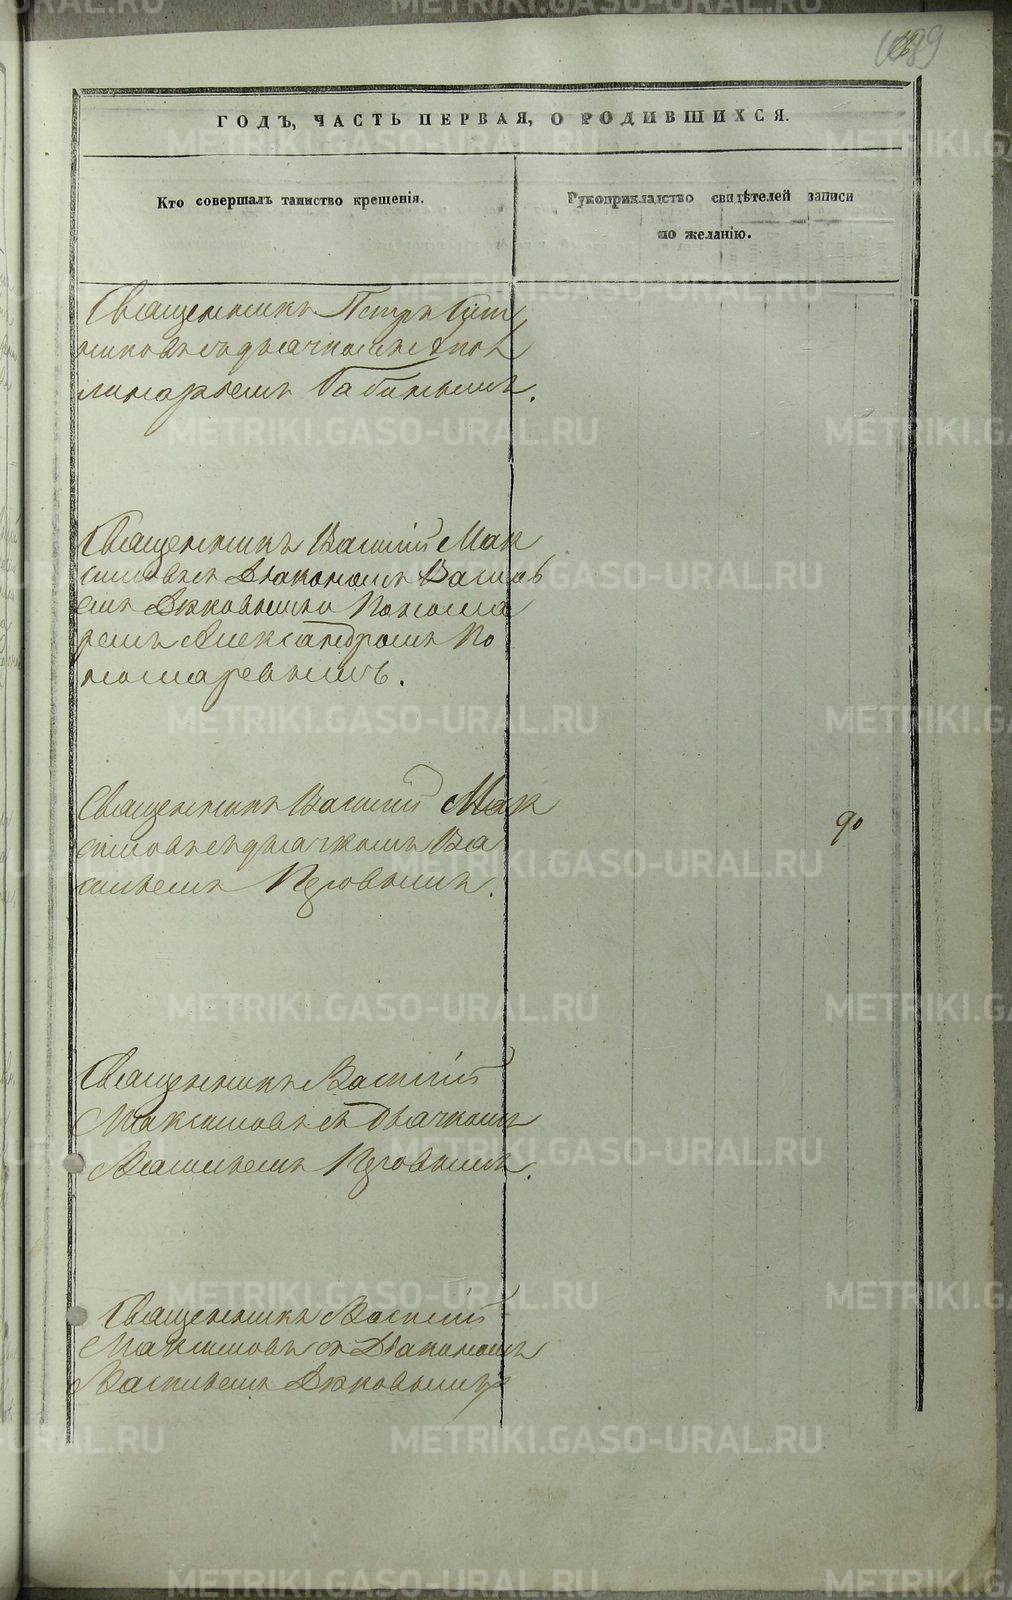 ГОДЪ, ЧАСТЬ ПЕРВАЯ, О РОДИВШИХСЯ.
Кто совершалъ таинство крещенія.
Рукоприкладство свидѣтелей записи
по желанію.
Священникъ Петръ
съ дьячкомъ Апол
линарьемъ Бабинымъ.
Священникъ Василій Мак
симовъ съ Діакономъ Василь
емъ и Понома
ремъ Александромъ По
номаревымъ.
Священникъ Василій Мак
симовъ съ дьячкомъ Ва
сильемъ
90
Священникъ Василій
Максимовъ съ дьячкомъ
Васильемъ
Священникъ Василій
Максимовъ съ Діакономъ
Васильемъ
METRIKI.GASO-URAL.RU